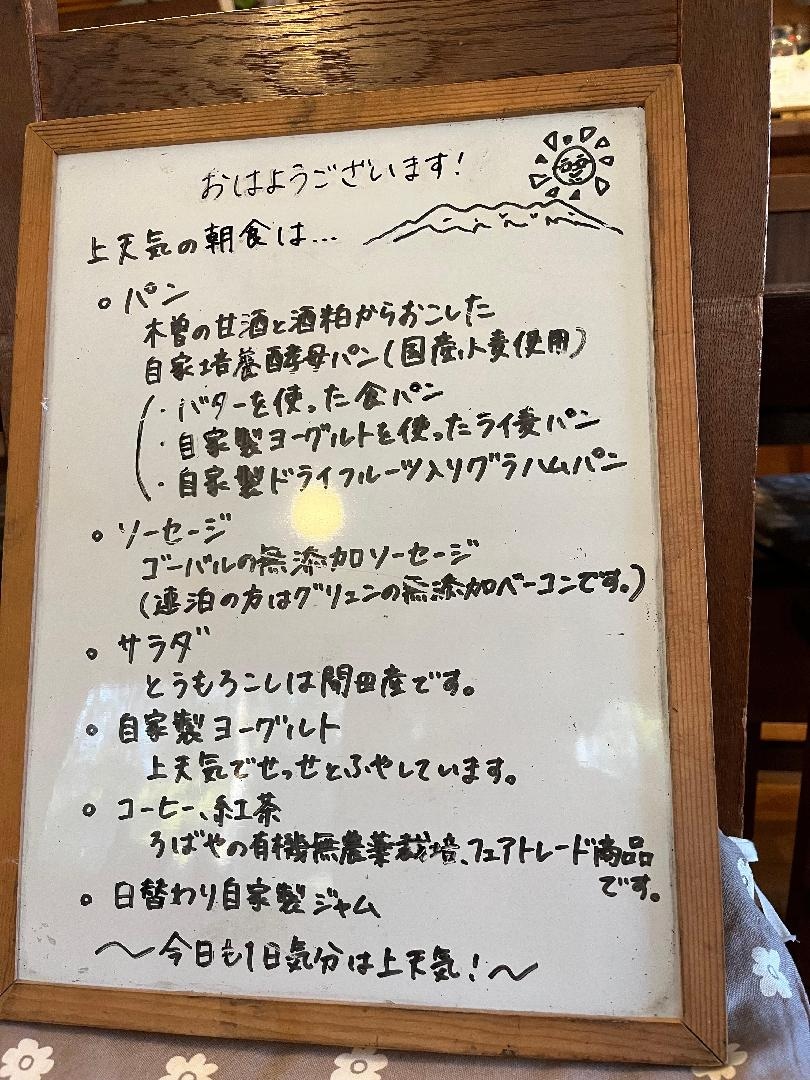 おはようございます!
上天気の朝食は...
○ パン
木曽の甘酒と酒粕からおこした
自家培養酵母パン(国産小麦使用)
・バターを使った食パン
・自家製ヨーグルトを使ったライ麦パン
・自家製ドライフルーツ入りグラハムパン
○ ソーセージ
ゴーバルの無添加ソーセージ
(連泊の方はグリュンの無添加ベーコンです。)
○ サラダ
とうもろこしは開田産です。
○ 自家製ヨーグルト
上天気でせっせとふやしています。
○ コーヒー、紅茶
ろばやの有機無農薬栽培、フェアトレード商品
です。
○ 日替わり自家製ジャム
〜今日も1日気分は上天気!〜